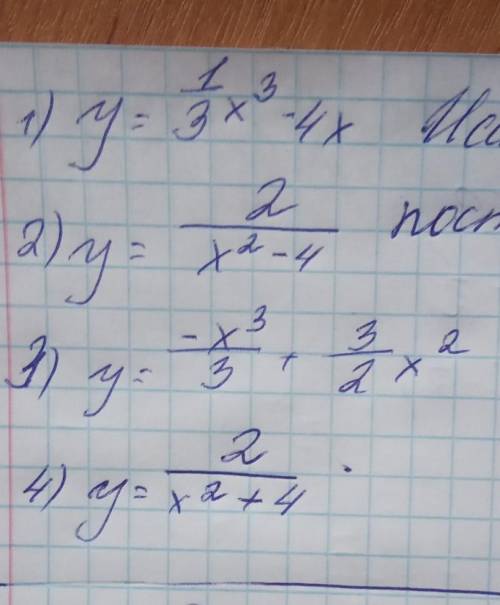 1) y = 1/3 x³ - 4x
2) y = 2/(x² - 4)
3) y = -x³/3 + 3/2 x²
4) y = 2/(x² + 4).